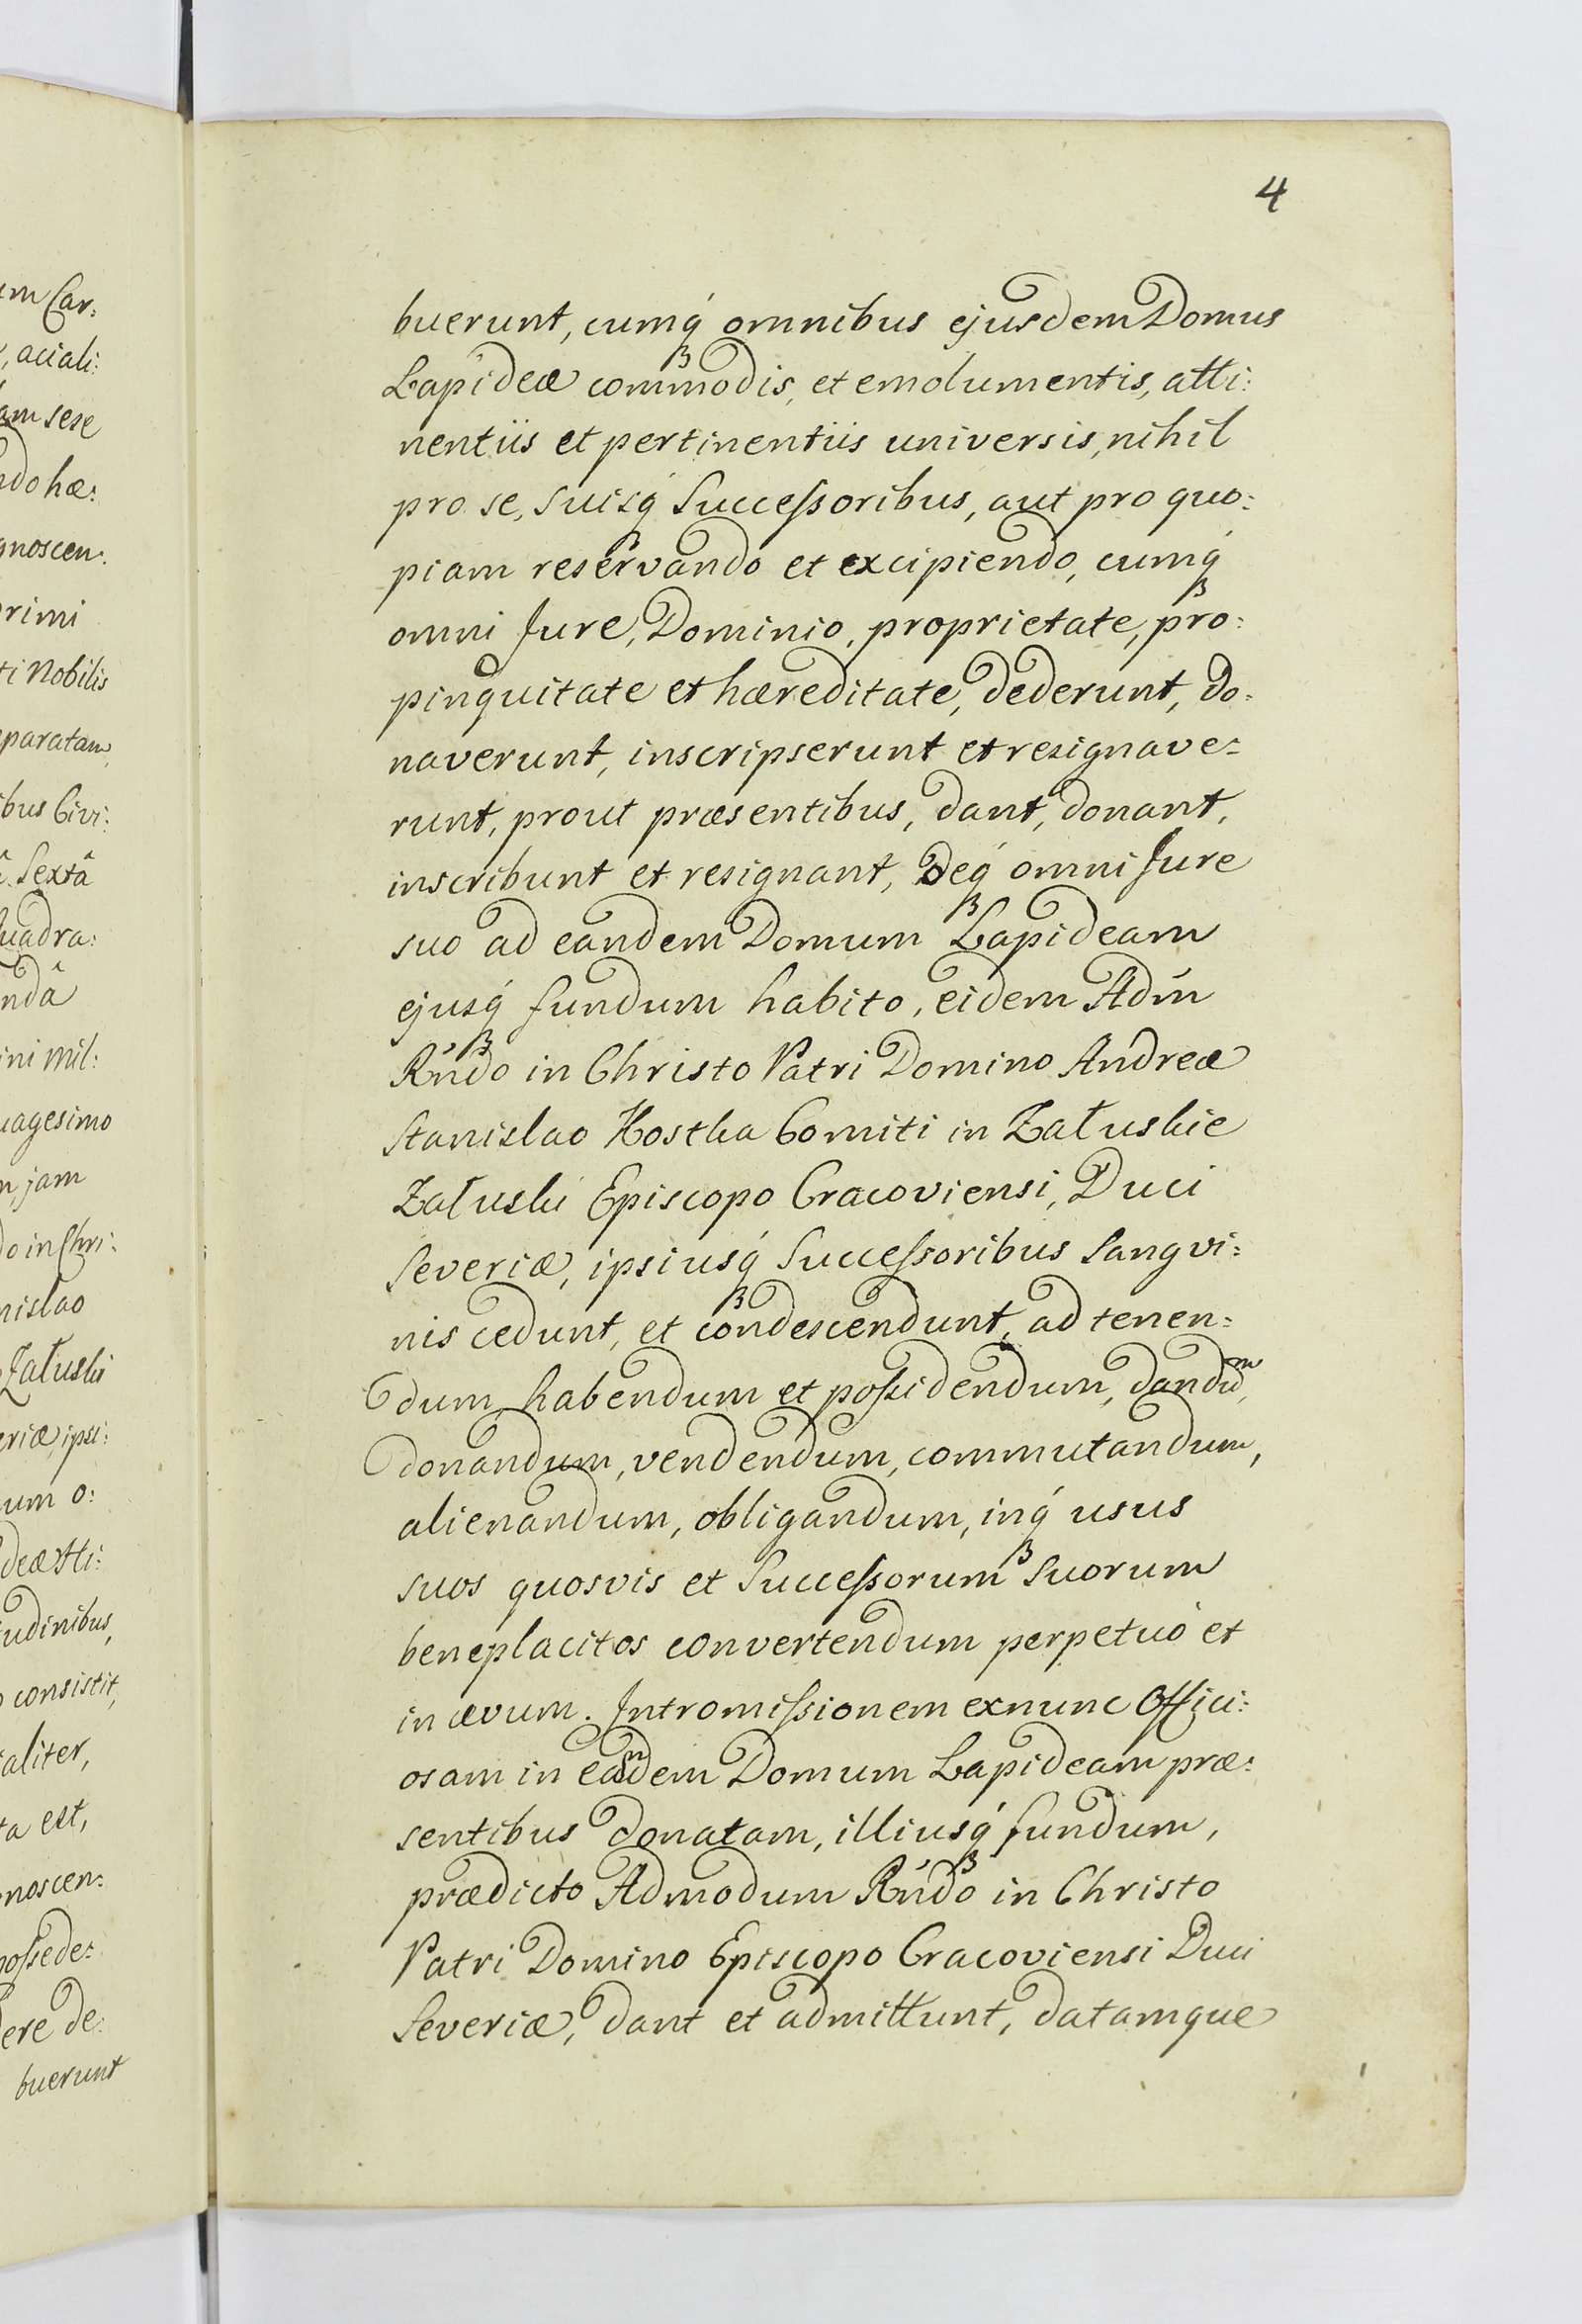 4
buerunt, cumq́ omnibus ejusdem Domus
Lapideæ commodis, et emolumentis, atti:
nentiis et pertinentiis universis, nihil
pro se, suisq́ Succeſsoribus, aut pro quo:
piam reservando et excipiendo, cumq́
omni Jure, Dominio, proprietate, pro:
pinquitate et hæreditate, dederunt, do:
naverunt, inscripserunt et resignave:
runt, prout præsentibus, dant, donant,
inscribunt et resignant, Deq́ omni Jure
suo ad eandem Domum Lapideam
ejusq́ fundum habito, eidem Adm̃
Rńdo in Christo Patri Domino Andreæ
Stanislao Kostka Comiti in Załuskie
Załuski Episcopo Cracoviensi, Duci
Severiæ, ipsiusq́ Succeſsoribus Sangvi:
nis cedunt, et condescendunt, ad tenen:
dum, habendum et poſsidendum, dandũm,
donandum, vendendum, commutandum,
alienandum, obligandum, inq́ usus
suos quosvis et Succeſsorum Suorum
beneplacitos convertendum perpetuò et
in ævum. Intromiſsionem exnunc Offici:
osam in eandem Domum Lapideam præ:
sentibus donatam, illiusq́ fundum,
prædicto Admodum Rńdo in Christo
Patri Domino Episcopo Cracoviensi Duci
Severiæ, dant et admittunt, datamque
um Car:
aciali:
am sese
ndo hæ:
gnoscen:
rimi
ti Nobilis
paratam,
ibus Civi:
Sextâ
uadra:
ndâ
ini Mil:
uagesimo
jam
do in Chri:
nislao
Załuski
eriæ, ipsi:
um o:
deæ Sti:
udinibus,
consistit,
aliter,
ta est,
noscen:
poſsede:
ere de:
buerunt